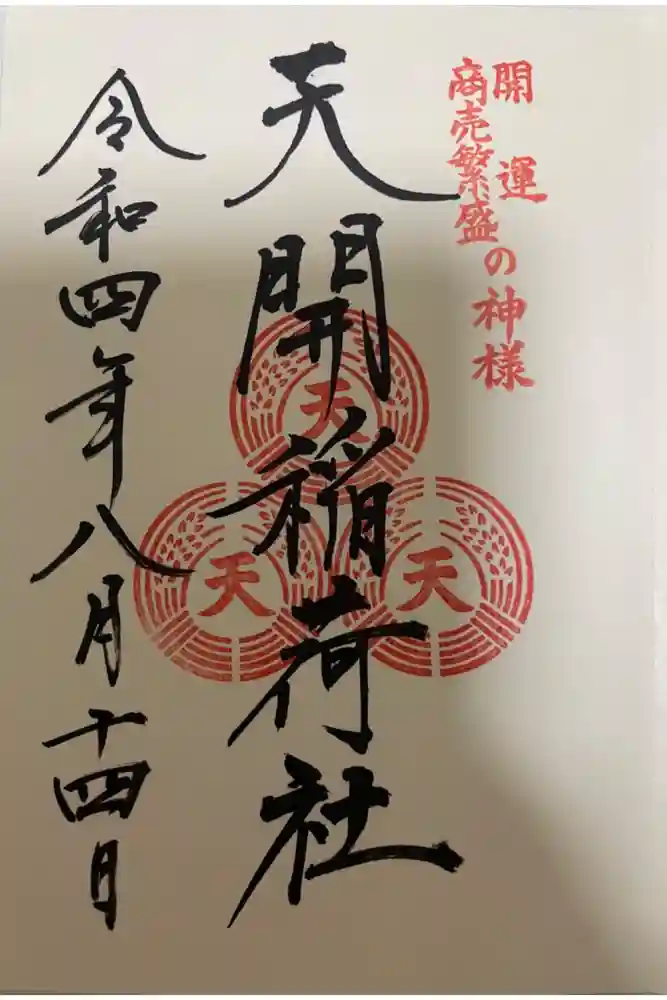 開運
商売繁盛
の神様
天開稲荷社
天
天
天
令和四年八月十四日